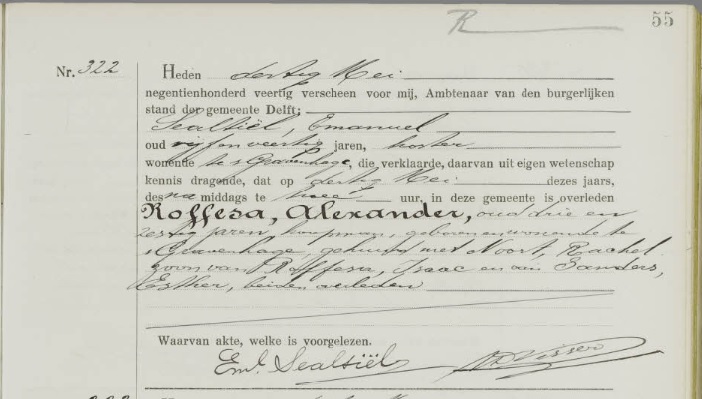 R
55
Nr. 322
Heden dertig Mei
negentienhonderd veertig verscheen voor mij, Ambtenaar van den burgerlijken
stand der gemeente Delft:
Sealtiël, Emanuel
oud vijf en veertig jaren, koster
wonende te 's Gravenhage, die verklaarde, daarvan uit eigen wetenschap
kennis dragende, dat op dertig Mei dezes jaars,
des na middags te twee uur, in deze gemeente is overleden
Roffesa, Alexander, oud drie en
zestig jaren, koopman, geboren en wonende te
's Gravenhage, gehuwd met Noort, Rachel
zoon van Roffesa, Isaac en van Sanders,
Esther, beiden overleden
Waarvan akte, welke is voorgelezen.
Em. Sealtiël Visser